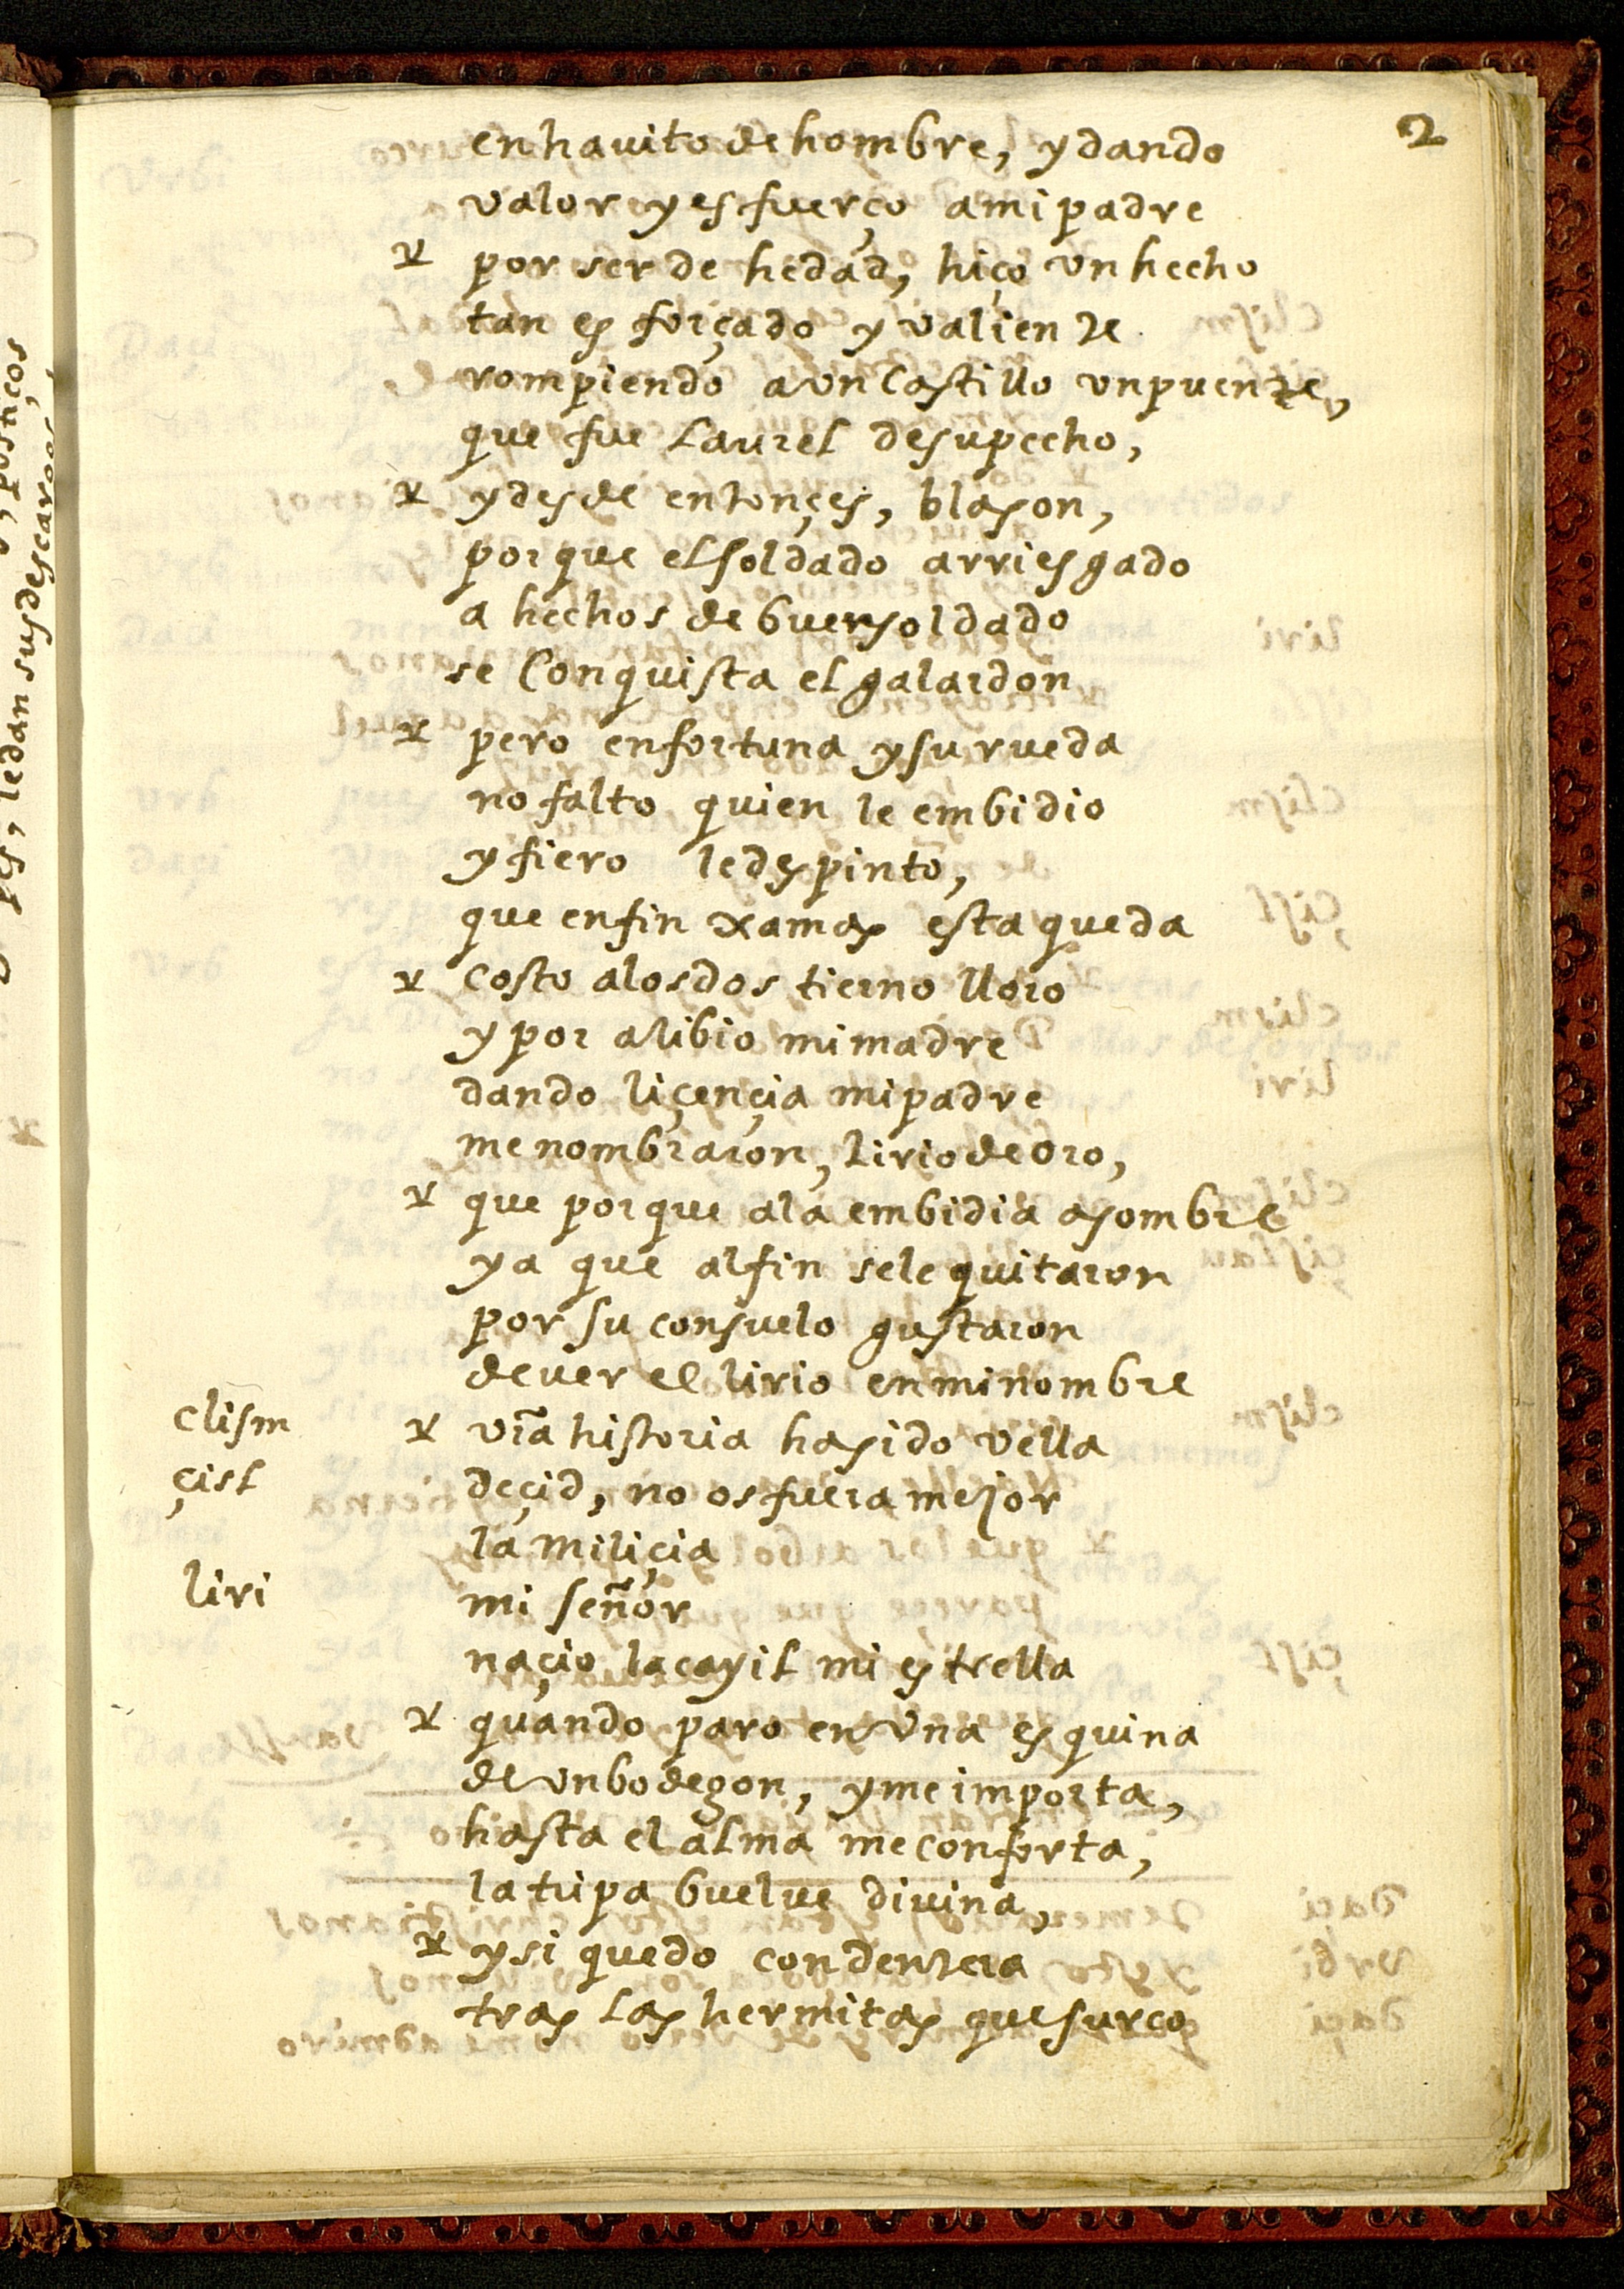 2
en hauito de hombre, y dando
valor y esfuerço a mi padre
por ser de hedad, hiço vn hecho
tan esforçado y valiente
rompiendo a vn Castillo vn puente,
que fue Laurel de su pecho,
y desde entonçes, blason,
porque el soldado arriesgado
a hechos de buen soldado
se Conquista el galardon
pero en fortuna y su rueda
no falto quien le embidio
y fiero le despinto,
que en fin xamas esta queda
Costo a los dos tierno lloro
y por alibio mi madre
dando liçençia mi padre
me nombraron, lirio de oro,
que porque a la embidia asombre
ya que al fin se le quitaron
por su consuelo gustaron
de ver el lirio en mi nombre
clism vrã historia ha sido vella
çisl deçid, no os fuera mejor
la miliçia
liri mi señor
naçio lacayil mi estrella
quando paro en vna esquina
de vn bodegon, y me importa,
hasta el alma me conforta,
la tripa buelue diuina,
y si quedo con dentera
tras las hermitas que surco